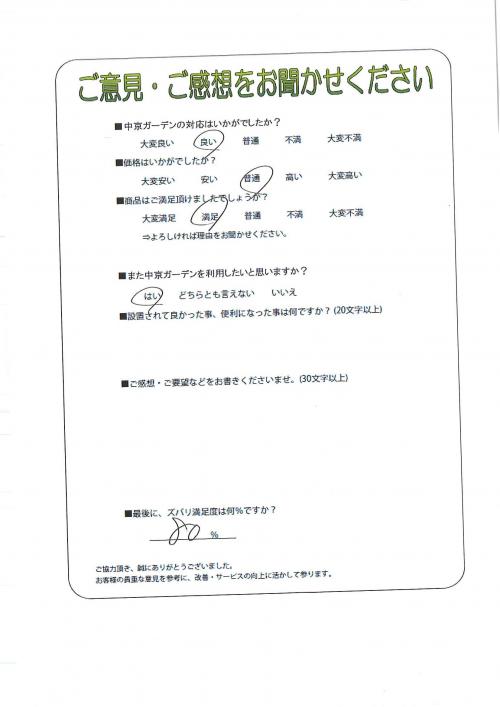 ご意見・ご感想をお聞かせください
■中京ガーデンの対応はいかがでしたか？
大変良い 良い 普通 不満 大変不満
■価格はいかがでしたか？
大変安い 安い 普通 高い 大変高い
■商品はご満足頂けましたでしょうか？
大変満足 満足 普通 不満 大変不満
⇒よろしければ理由をお聞かせください。
■また中京ガーデンを利用したいと思いますか？
はい どちらとも言えない いいえ
■設置されて良かった事、便利になった事は何ですか？(20文字以上)
■ご感想・ご要望などをお書きくださいませ。(30文字以上)
■最後に、ズバリ満足度は何％ですか？
80 ％
ご協力頂き、誠にありがとうございました。
お客様の貴重な意見を参考に、改善・サービスの向上に活かして参ります。